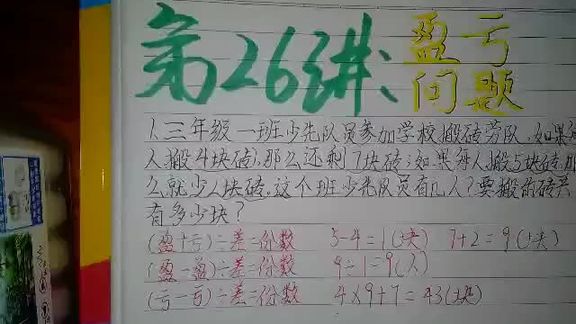 第26讲、盈亏问题
1.三年级一班少先队员参加学校搬砖劳队,如果每
人搬4块砖,那么还剩7块砖;如果每人搬5块砖,那
么就少2块砖.这个班少先队员有几人?要搬的砖共
有多少块?
(盈+亏)÷差=份数 5-4=1(块) 7+2=9(块)
(盈-盈)÷差=份数 9÷1=9(人)
(亏-亏)÷差=份数 4×9+7=43(块)